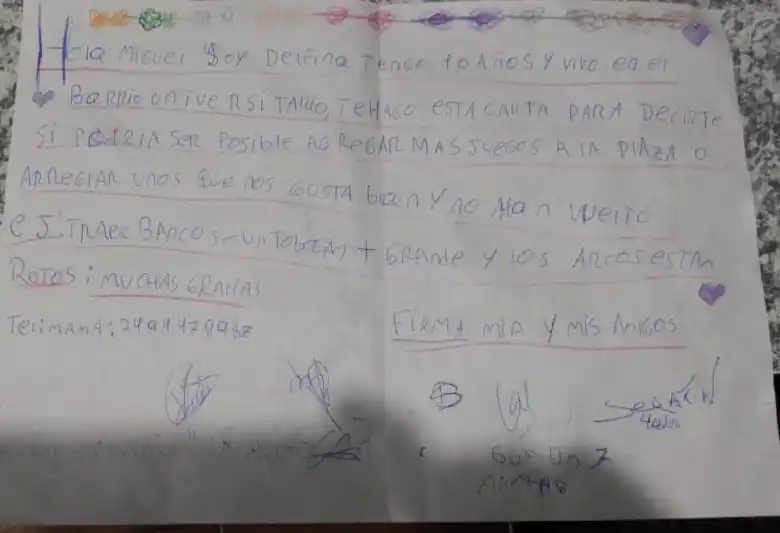 Hola Miguel Soy Delfina Tengo 10 AÑOS Y vivo en el
BARRIO UNIVERSITARIO, TE HAGO ESTA CARTA PARA DECIRTE
SI PODRIA SER POSIBLE AGREGAR MAS JUEGOS A LA PLAZA O
ARREGLAR UNOS QUE NOS GUSTABAN Y NO HAN VUELTO
TRAER BANCOS UN TOBOGAN + GRANDE Y LOS ARCOS ESTAN
ROTOS; MUCHAS GRACIAS
Tel: MAMA:
FIRMA MIA Y MIS AMIGOS
B
7